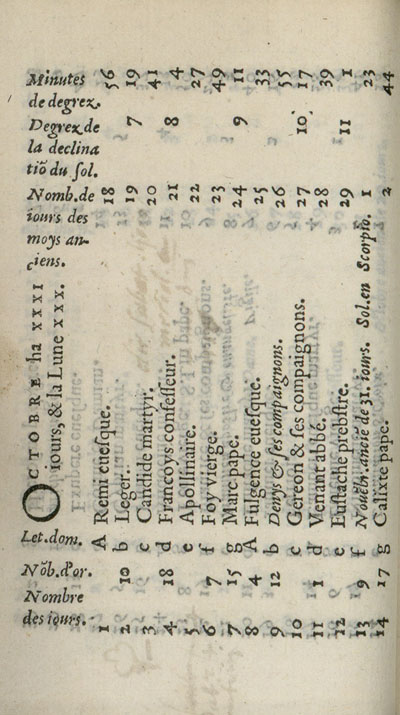 Nombre
des iours.
Nōb. d'or.
Let. dom.
OCTOBRE ha XXXI
iours, & la Lune XXX.
Nomb. de
iours des
moys an-
ciens.
Degrez de
la declina
tiō du ſol.
Minutes
de degrez.
1 A Remi eueſque. 18 56
2 10 b Leger. 19 7 19
3 c Candide martyr. 20 41
4 18 d Francoys confeſſeur. 21 8 4
5 e Apollinaire. 22 27
6 7 f Foy vierge. 23 49
7 15 g Marc pape. 24 9 11
8 4 A Fulgence eueſque. 25 33
9 12 b Denys & ſes compaignons. 26 55
10 c Gereon & ſes compaignons. 27 10 17
11 1 d Venant abbé. 28 39
12 e Euſtache prebſtre. 29 11 1
13 9 f Nouēb. anciē de 31. iours. Sol. en Scorpio. 1 23
14 17 g Calixte pape. 2 44